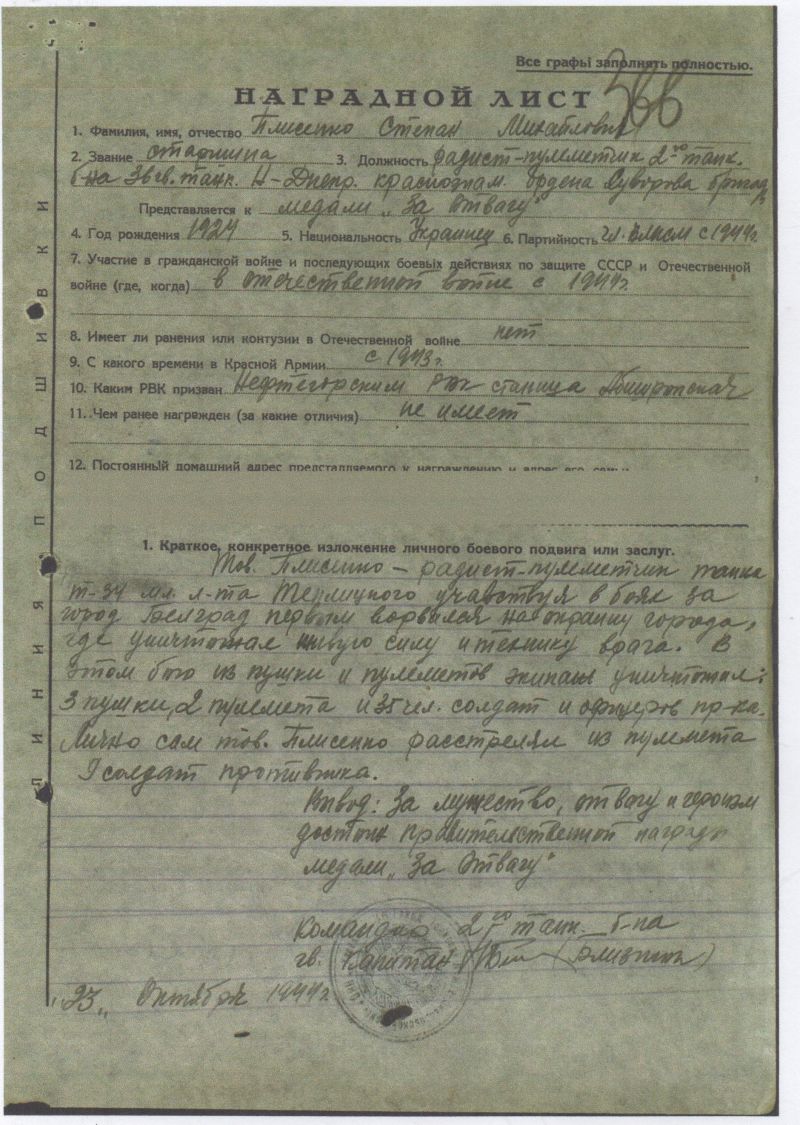 Все графы заполнять полностью.
366
НАГРАДНОЙ ЛИСТ
1. Фамилия, имя, отчество Плисенко Степан Михайлович
2. Звание старшина 3. Должность радист-пулеметчик 2го танк.
б-на 36 гв. танк. Н-Днепр. краснознам. ордена Суворова бригад
Представляется к медали „За Отвагу"
4. Год рождения 1924 5. Национальность Украинец 6. Партийность чл. влксм с 1944г.
7. Участие в гражданской войне и последующих боевых действиях по защите СССР и Отечественной
войне (где, когда) в отечественной войне с 1944г.
8. Имеет ли ранения или контузии в Отечественной войне нет
9. С какого времени в Красной Армии с 1943г.
10. Каким РВК призван Нефтегорским РВК станица Апшеронская
11. Чем ранее награжден (за какие отличия) не имеет
12. Постоянный домашний адрес представляемого к награждению и адрес его семьи
ЛИНИЯ ПОДШИВКИ
1. Краткое, конкретное изложение личного боевого подвига или заслуг.
Тов. Плисенко – радист-пулеметчик танка
т-34 мл. л-та Терлицкого участвуя в боях за
город Белград первым ворвался на окраину города,
где уничтожал живую силу и технику врага. В
этом бою из пушки и пулеметов экипаж уничтожил:
3 пушки, 2 пулемета и 35 чел. солдат и офицеров пр-ка.
Лично сам тов. Плисенко расстрелял из пулемета
9 солдат противника.
Вывод: За мужество, отвагу и героизм
достоин правительственной награды
медали „За Отвагу"
Командир 2го танк. б-на
гв. Капитан
„23„ Октября 1944г.